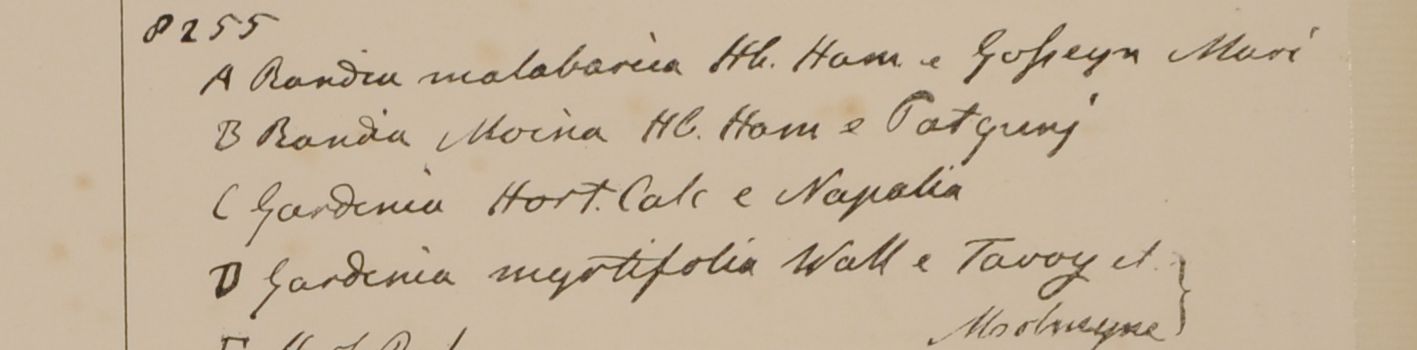 8255
A Randia malabarica Hb. Ham. e Gosseyn Mari
B Randia Moina Hb. Ham e Patgunj
C Gardenia Hort. Calc e Napalia
D Gardenia myrtifolia Wall e Tavoy et
Molmeyne